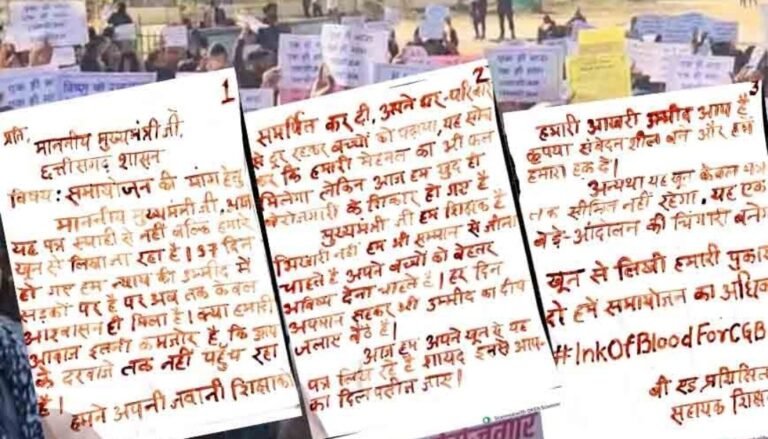 1
प्रति,
माननीय मुख्यमंत्री जी,
छत्तीसगढ़ शासन
विषय: समायोजन की मांग हेतु
माननीय मुख्यमंत्री जी, आप
यह पत्र स्याही से नहीं बल्कि हमारे
खून से लिखा जा रहा है। 37 दिन
हो गए हम न्याय की उम्मीद में
सड़कों पर है पर अब तक केवल
आश्वासन ही मिला है। क्या हमारी
आवाज इतनी कमजोर है, कि आप
के दरवाजे तक नहीं पहुंच रहा
है।
हमने अपनी जवानी शिक्षा को
2
समर्पित कर दी, अपने घर-परिवार
से दूर रहकर बच्चों को पढ़ाया, यह सोच
कर कि हमारी मेहनत का भी फल
मिलेगा लेकिन आज हम खुद ही
बेरोजगारी के शिकार हो गए है
मुख्यमंत्री जी हम शिक्षक है
भिखारी नहीं हम भी सम्मान से जीना
चाहते है अपने बच्चों को बेहतर
भविष्य देना चाहते है। हर दिन
अपमान सहकर भी उम्मीद का दीप
जलाए बैठे है।
आज हम अपने खून से यह
पत्र लिख रहे है शायद इससे आप-
का दिल पसीज जाए।
3
हमारी आखरी उम्मीद आप है
कृपया संवेदनशील बने और हमें
हमारा हक दे।
अन्यथा यह खून केवल पत्र
तक सीमित नहीं रहेगा, यह एक
बड़े-आंदोलन की चिंगारी बनेग
खून से लिखी हमारी पुकार
दो हमें समायोजन का अधिक
#InkOfBloodForCGB
बी एड प्रशिक्षित
सहायक शिक्षक